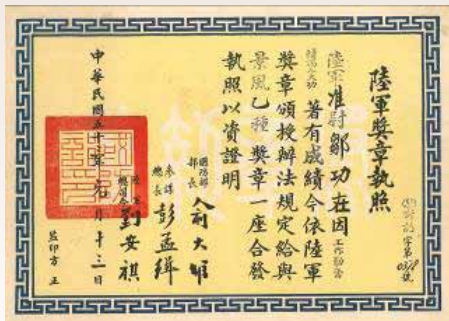 陸軍獎章執照
陸軍准尉鄒功在因工作勤奮
著有成績今依陸軍
獎章頒授辦法規定給與
景風乙種獎章一座合發
執照以資證明
國防部部長俞大維
參謀總長彭孟緝
陸軍總司令劉安祺
中華民國五十年元月十三日
監印方正